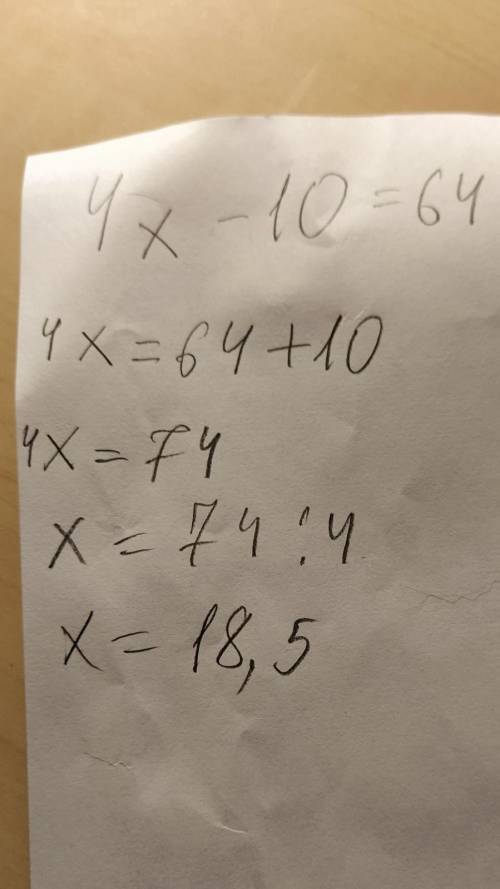 4x - 10 = 64
4x = 64 + 10
4x = 74
x = 74 : 4
x = 18,5